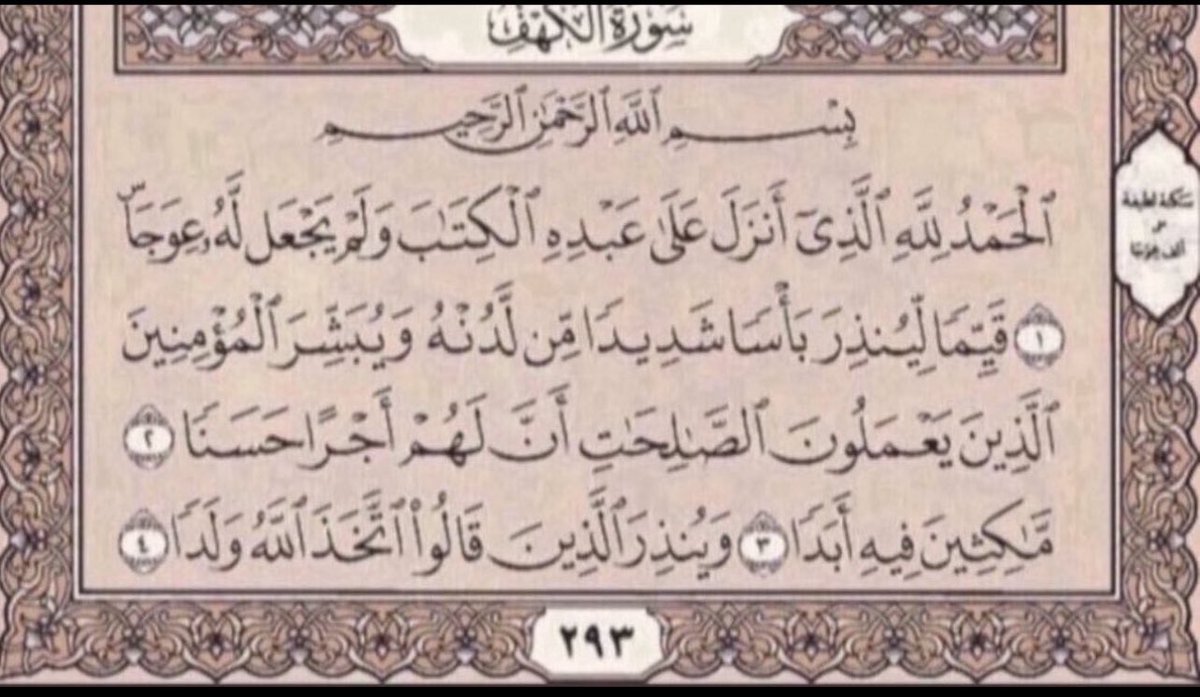 سُورَةُ الكَهْفِ
بِسْمِ ٱللَّهِ ٱلرَّحْمَٰنِ ٱلرَّحِيمِ
ٱلْحَمْدُ لِلَّهِ ٱلَّذِىٓ أَنزَلَ عَلَىٰ عَبْدِهِ ٱلْكِتَٰبَ وَلَمْ يَجْعَل لَّهُۥ عِوَجَاۜ
١ قَيِّمًا لِّيُنذِرَ بَأْسًا شَدِيدًا مِّن لَّدُنْهُ وَيُبَشِّرَ ٱلْمُؤْمِنِينَ
ٱلَّذِينَ يَعْمَلُونَ ٱلصَّٰلِحَٰتِ أَنَّ لَهُمْ أَجْرًا حَسَنًا ٢
مَّٰكِثِينَ فِيهِ أَبَدًا ٣ وَيُنذِرَ ٱلَّذِينَ قَالُوا۟ ٱتَّخَذَ ٱللَّهُ وَلَدًا ٤
سكتة لطيفة
على
ألف عوجا
٢٩٣